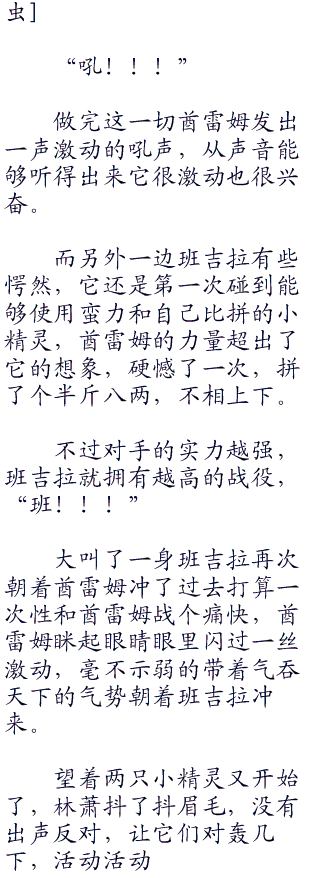 虫］
“吼！！！”
做完这一切酋雷姆发出
一声激动的吼声，从声音能
够听得出来它很激动也很兴
奋。
而另外一边班吉拉有些
愕然，它还是第一次碰到能
够使用蛮力和自己比拼的小
精灵，酋雷姆的力量超出了
它的想象，硬憾了一次，拼
了个半斤八两，不相上下。
不过对手的实力越强，
班吉拉就拥有越高的战役，
“班！！！”
大叫了一身班吉拉再次
朝着酋雷姆冲了过去打算一
次性和酋雷姆战个痛快，酋
雷姆眯起眼睛眼里闪过一丝
激动，毫不示弱的带着气吞
天下的气势朝着班吉拉冲
来。
望着两只小精灵又开始
了，林萧抖了抖眉毛，没有
出声反对，让它们对轰几
下，活动活动